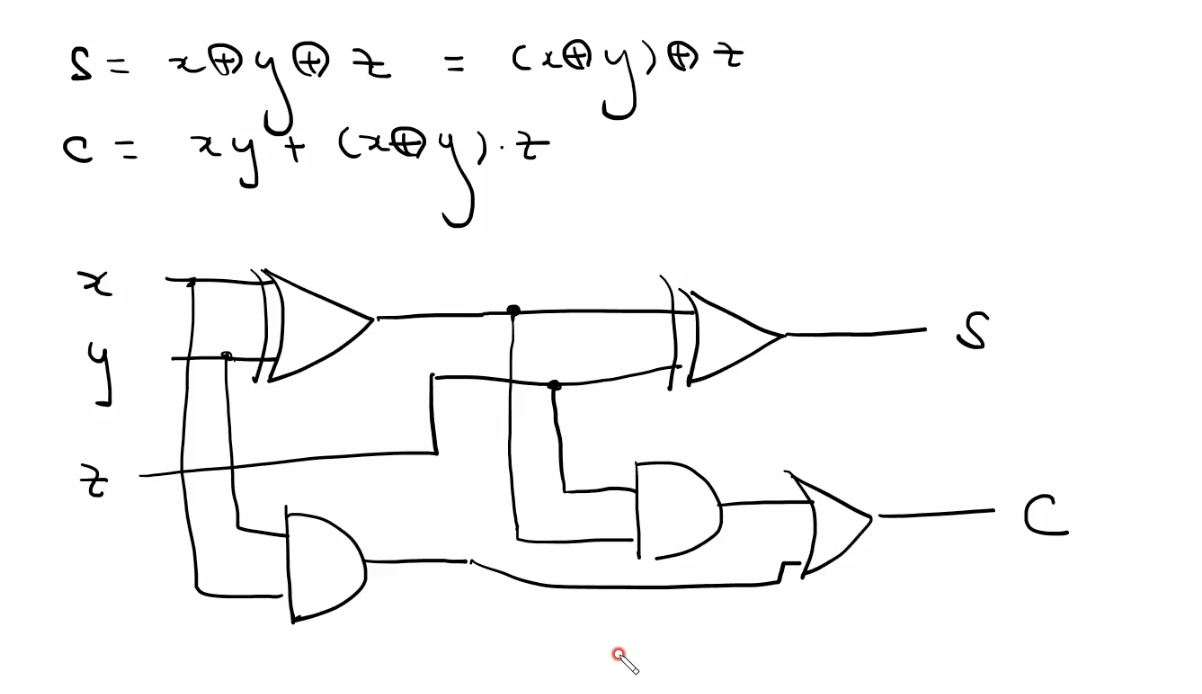 S = x⊕y⊕z = (x⊕y)⊕z
C = xy + (x⊕y)·z
x
y
S
z
C